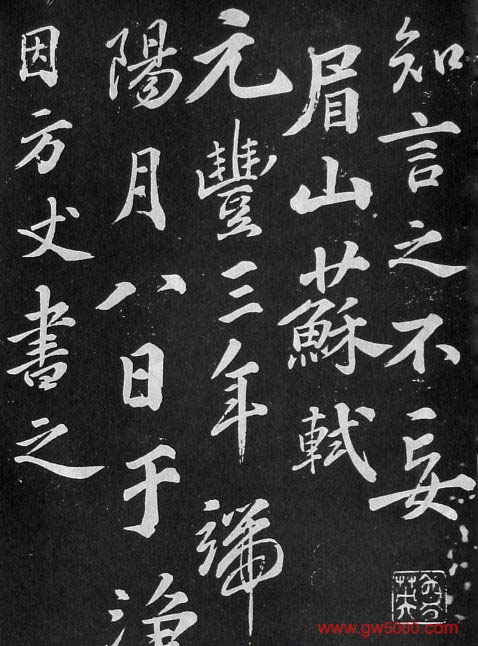 知言之不妄
眉山蘇軾
元豐三年端
陽月八日于淨
因方丈書之
www.gw5000.com